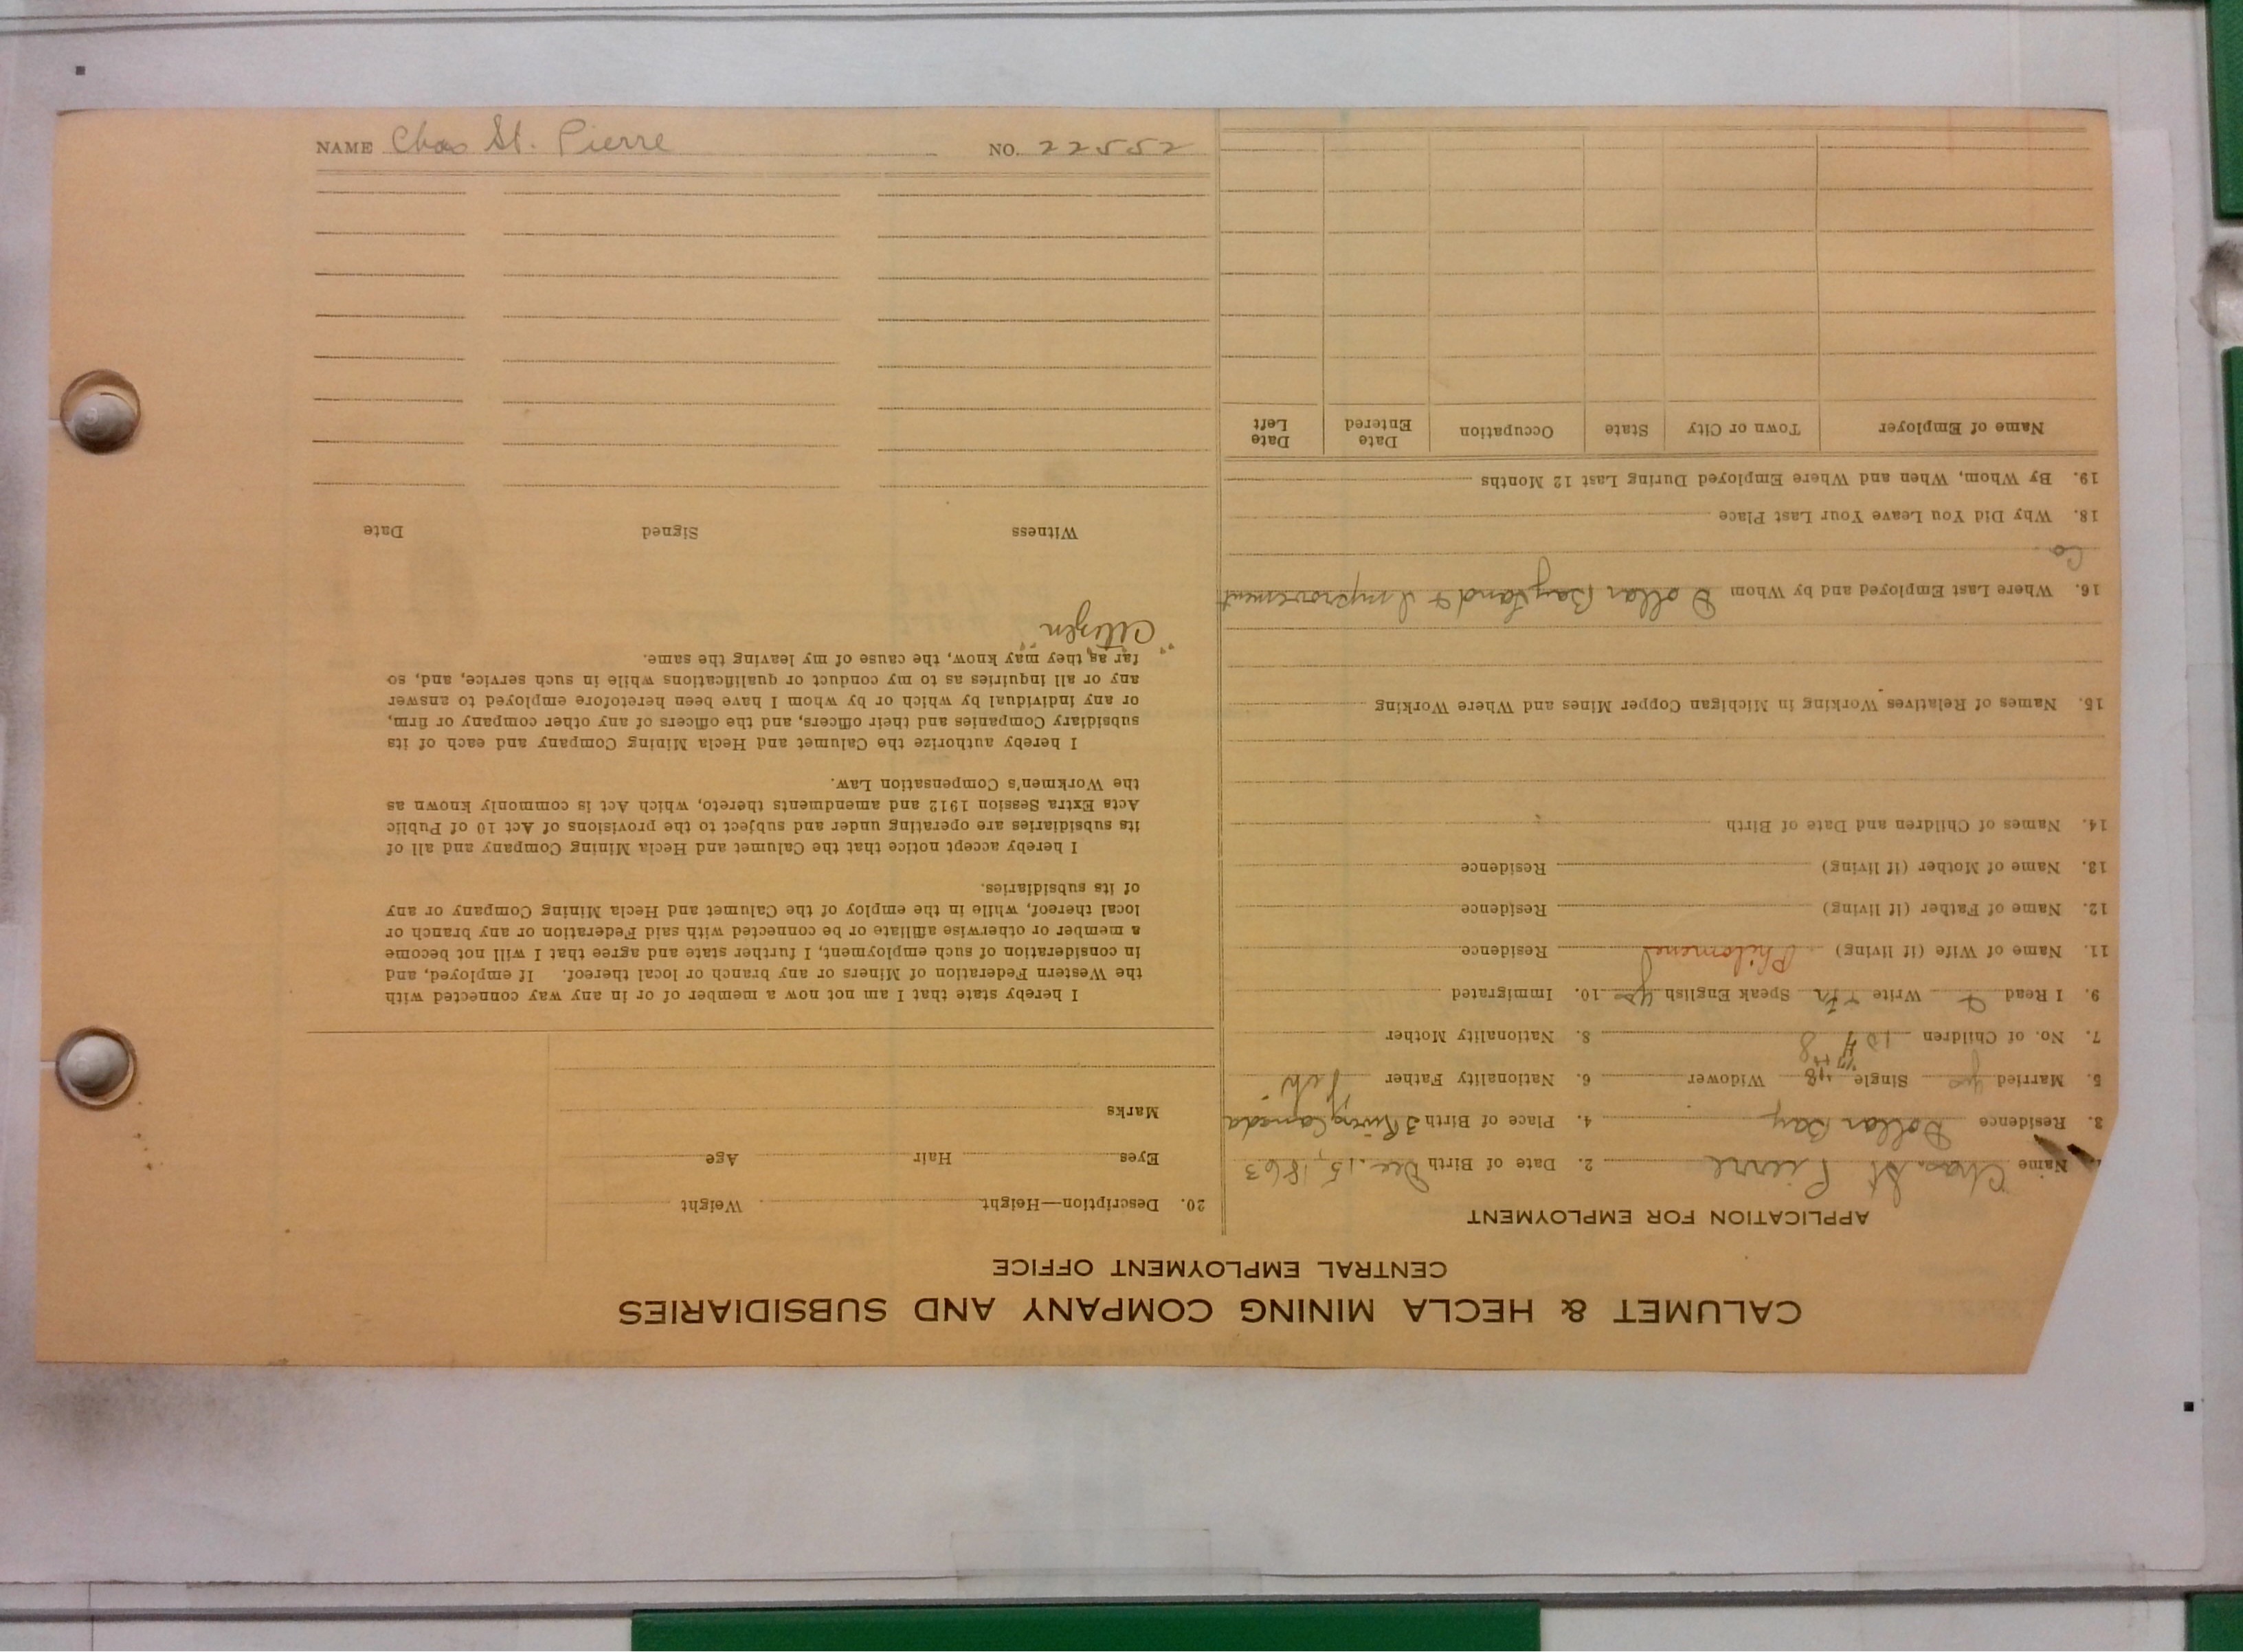 CALUMET & HECLA MINING COMPANY AND SUBSIDIARIES
CENTRAL EMPLOYMENT OFFICE
APPLICATION FOR EMPLOYMENT
Name Chas. St Pierre 2. Date of Birth Dec. 15, 1863
3. Residence Dollar Bay 4. Place of Birth 3 Rivers Canada
5. Married yes Single Widower 6. Nationality Father
7. No. of Children 8. Nationality Mother
9. I Read Write Speak English yes 10. Immigrated
11. Name of Wife (if living) Philomene Residence
12. Name of Father (if living) Residence
13. Name of Mother (if living) Residence
14. Names of Children and Date of Birth
15. Names of Relatives Working in Michigan Copper Mines and Where Working
16. Where Last Employed and by Whom Dollar Bay Land & Improvement
Co.
18. Why Did You Leave Your Last Place
19. By Whom, When and Where Employed During Last 12 Months
Name of Employer Town or City State Occupation Date Entered Date Left
20. Description—Height Weight
Eyes Hair Age
Marks
I hereby state that I am not now a member of or in any way connected with
the Western Federation of Miners or any branch or local thereof. If employed, and
in consideration of such employment, I further state and agree that I will not become
a member or otherwise affiliate or be connected with said Federation or any branch or
local thereof, while in the employ of the Calumet and Hecla Mining Company or any
of its subsidiaries.
I hereby accept notice that the Calumet and Hecla Mining Company and all of
its subsidiaries are operating under and subject to the provisions of Act 10 of Public
Acts Extra Session 1912 and amendments thereto, which Act is commonly known as
the Workmen's Compensation Law.
I hereby authorize the Calumet and Hecla Mining Company and each of its
subsidiary Companies and their officers, and the officers of any other company or firm,
or any individual by which or by whom I have been heretofore employed to answer
any or all inquiries as to my conduct or qualifications while in such service, and, so
far as they may know, the cause of my leaving the same.
"Citizen"
Witness Signed Date
NAME Chas St. Pierre NO. 22552